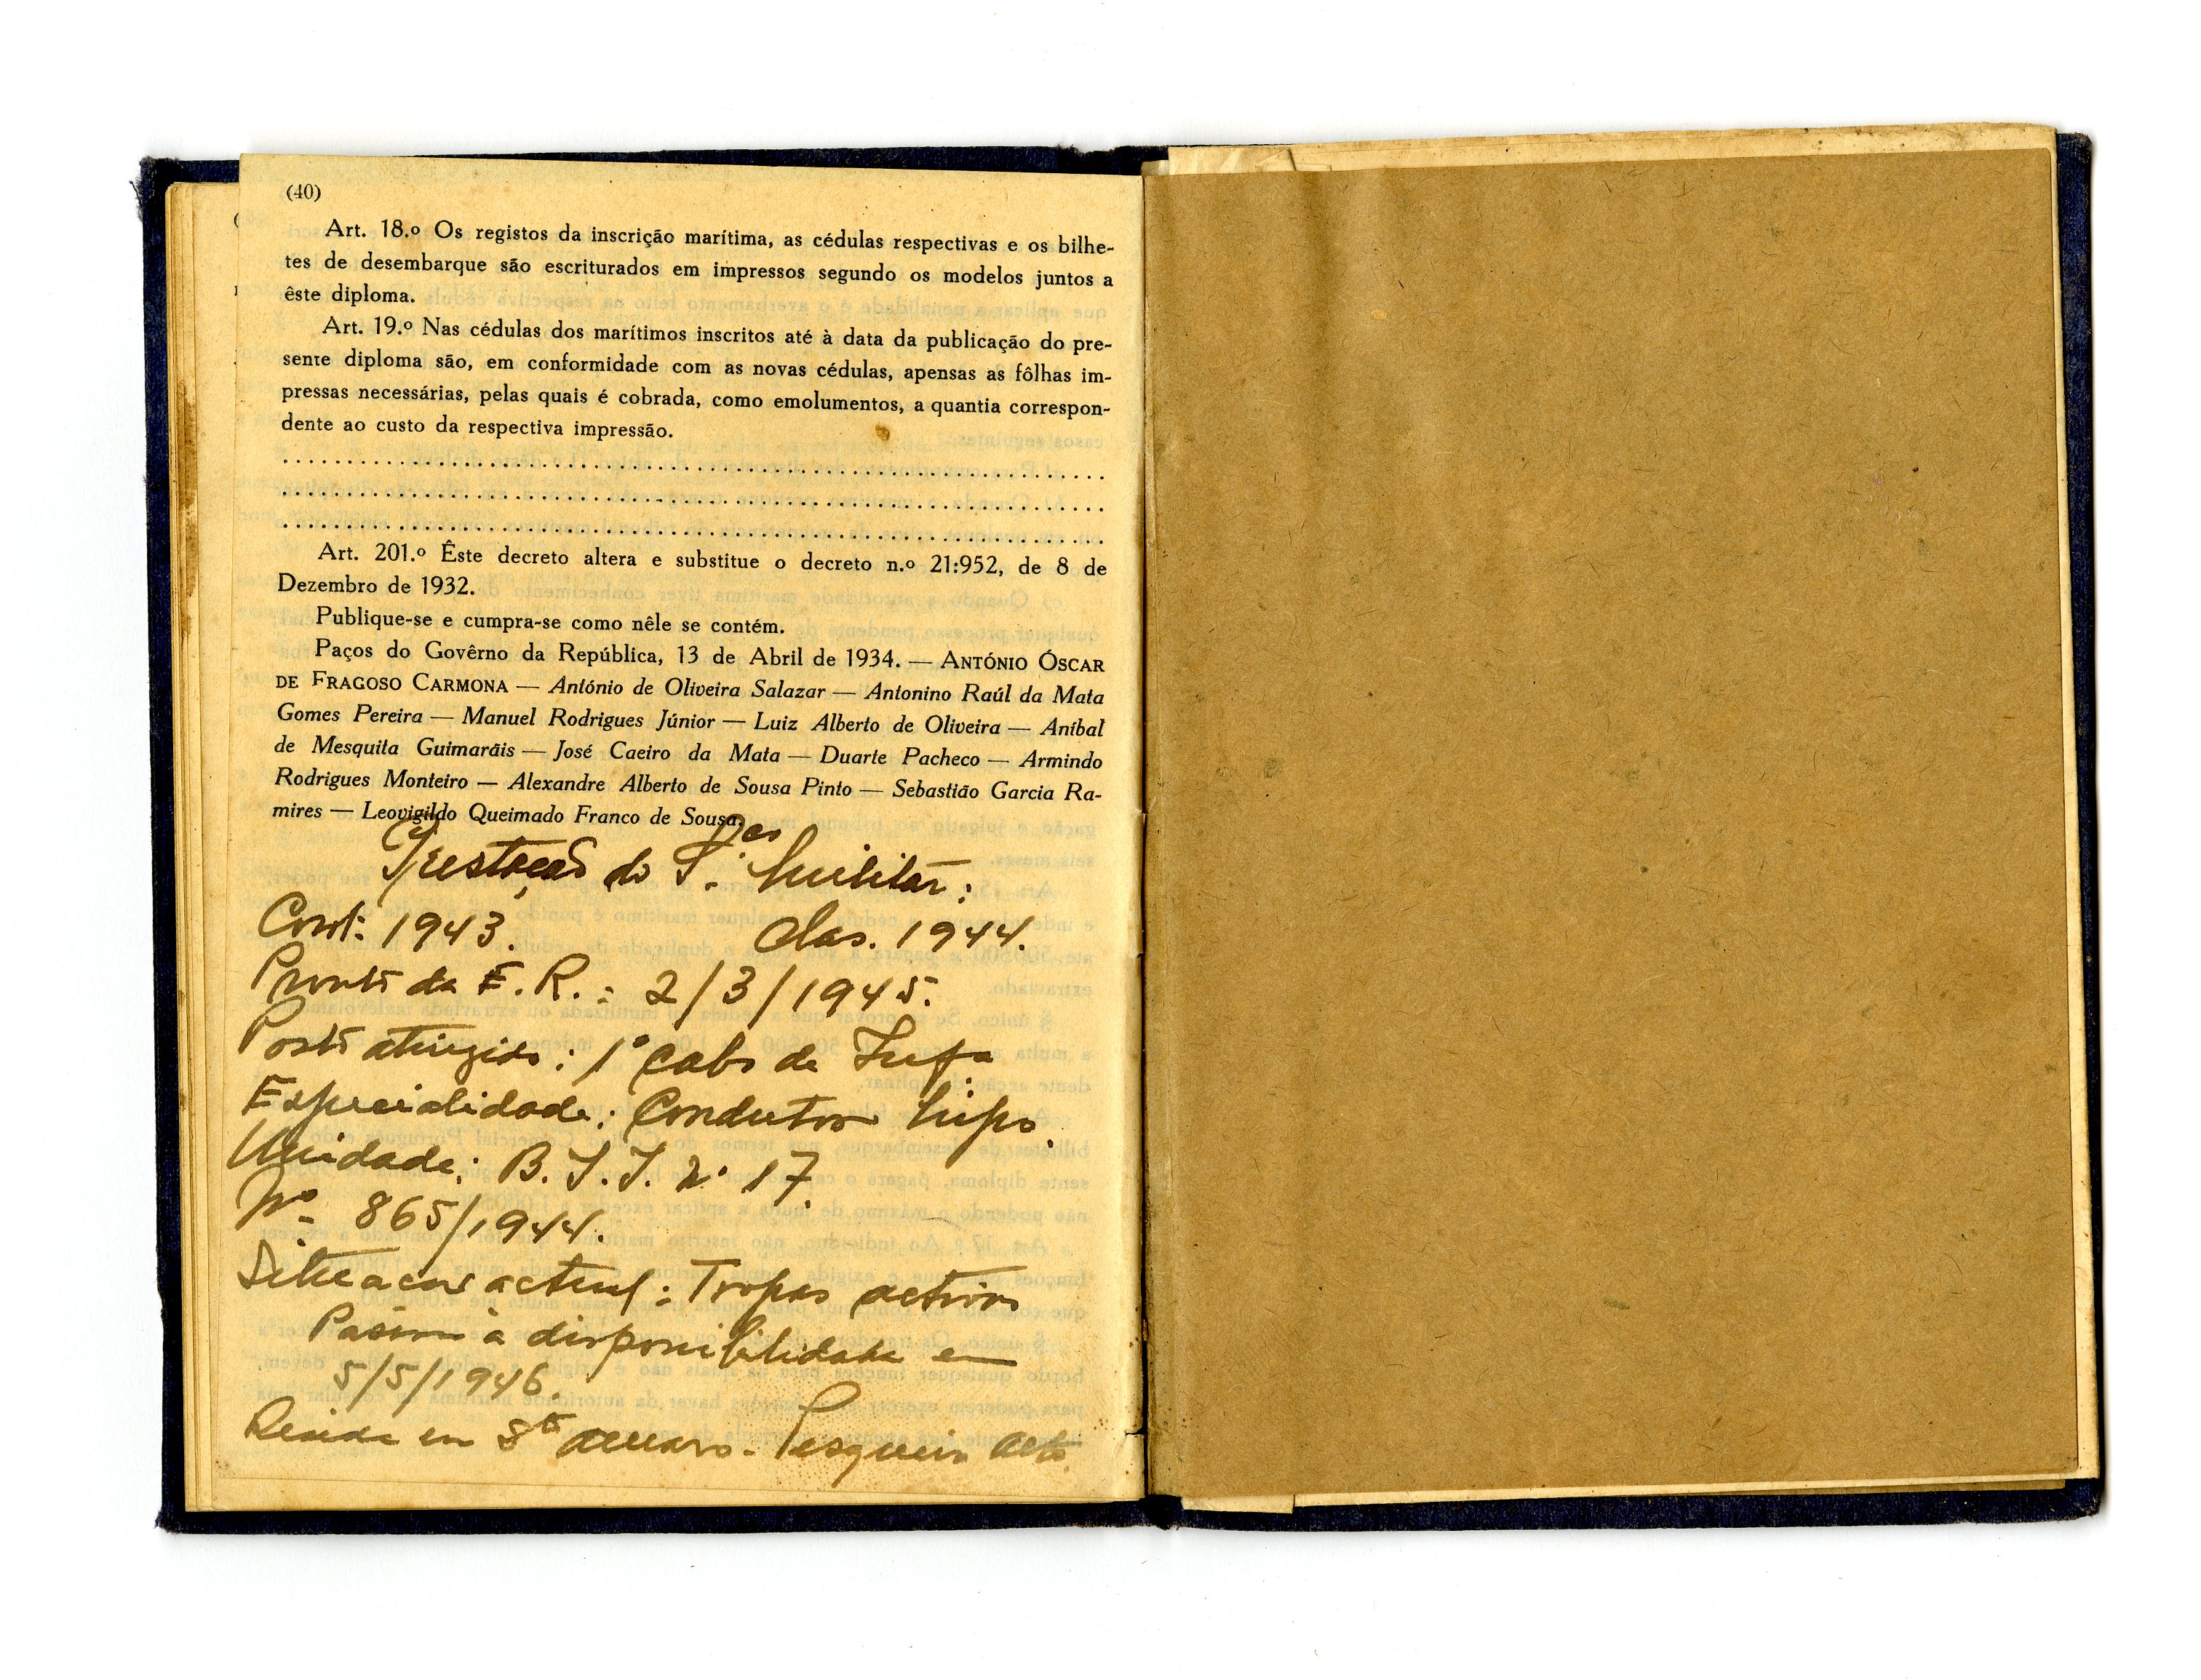 (40)
Art. 18.º Os registos da inscrição marítima, as cédulas respectivas e os bilhe-
tes de desembarque são escriturados em impressos segundo os modelos juntos a
êste diploma.
Art. 19.º Nas cédulas dos marítimos inscritos até à data da publicação do pre-
sente diploma são, em conformidade com as novas cédulas, apensas as fôlhas im-
pressas necessárias, pelas quais é cobrada, como emolumentos, a quantia correspon-
dente ao custo da respectiva impressão.
Art. 201.º Êste decreto altera e substitue o decreto n.º 21:952, de 8 de
Dezembro de 1932.
Publique-se e cumpra-se como nêle se contém.
Paços do Govêrno da República, 13 de Abril de 1934. — ANTÓNIO ÓSCAR
DE FRAGOSO CARMONA — António de Oliveira Salazar — Antonino Raúl da Mata
Gomes Pereira — Manuel Rodrigues Júnior — Luiz Alberto de Oliveira — Aníbal
de Mesquita Guimarãis — José Caeiro da Mata — Duarte Pacheco — Armindo
Rodrigues Monteiro — Alexandre Alberto de Sousa Pinto — Sebastião Garcia Ra-
mires — Leovigildo Queimado Franco de Sousa.
Prestação do S.ço Militar:
Cont: 1943. Clas. 1944.
Pronto da E. R.: 2/3/1945.
Posto atingido: 1º Cabo de Infª
Especialidade: Condutor hipo.
Unidade: B. I. I. nº 17.
Nº 865/1944.
Situação actual: Tropas activas
Passou à disponibilidade em
5/5/1946.
Reside em Stº Amaro - Pesqueiro Alto.